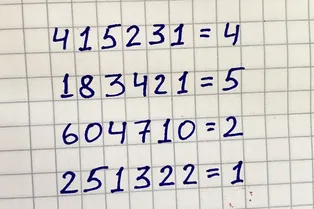 415231 = 4
183421 = 5
604710 = 2
251322 = 1